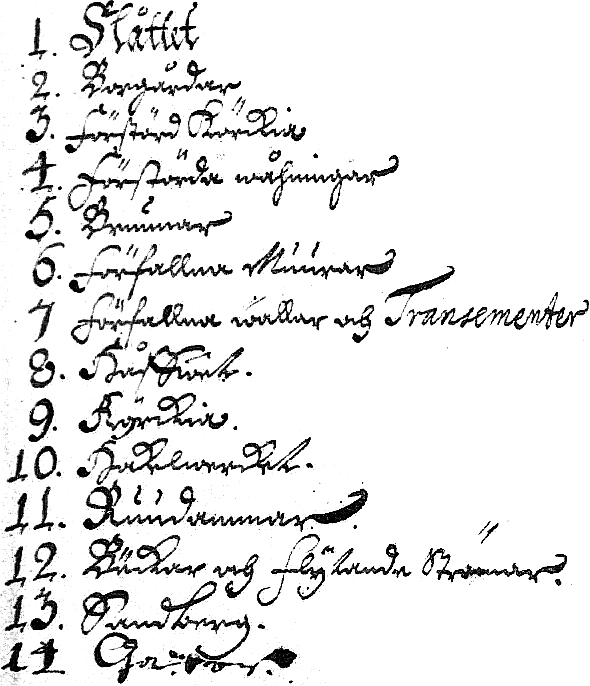 1. Slåttet
2. Borgårdar
3. Förstörd Körckia
4. Förstörda wåhningar
5. Brunnar
6. Förfallna Muurar
7 Förfallna wallar och Transementer
8.
9. Kyrckia.
10. Hakelwercket.
11. Ruudammar.
12. Bäckar och flÿtande Strömar.
13. Sandberg.
14